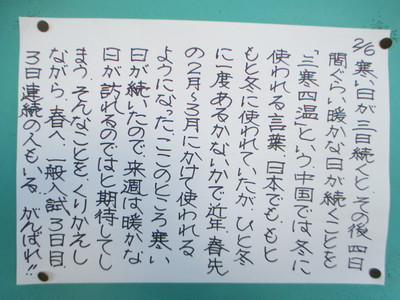 2/6 寒い日が三日続くと、その後四日
間ぐらい暖かな日が続くことを
「三寒四温」という。中国では、冬に
使われる言葉。日本でも、もと
もと冬に使われていたが、ひと冬
に一度あるかないかで近年、春先
の2月～3月にかけて使われる
ようになった。ここのところ、寒い
日が続いたので、来週は暖かな
日が訪れるのではと期待してし
まう。そんなことを、くりかえし
ながら、春へ。一般入試3日目。
3日連続の人もいる。がんばれ!!